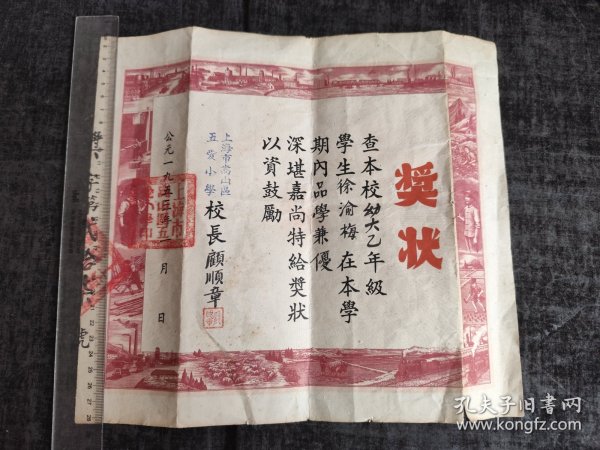 獎狀
查本校幼大乙年級
學生徐渝梅在本學
期內品學兼優
深堪嘉尚特給獎狀
以資鼓勵
上海市嵩山區
五愛小學
校長顧順章
公元一九五三年一月 日
號
孔夫子旧书网